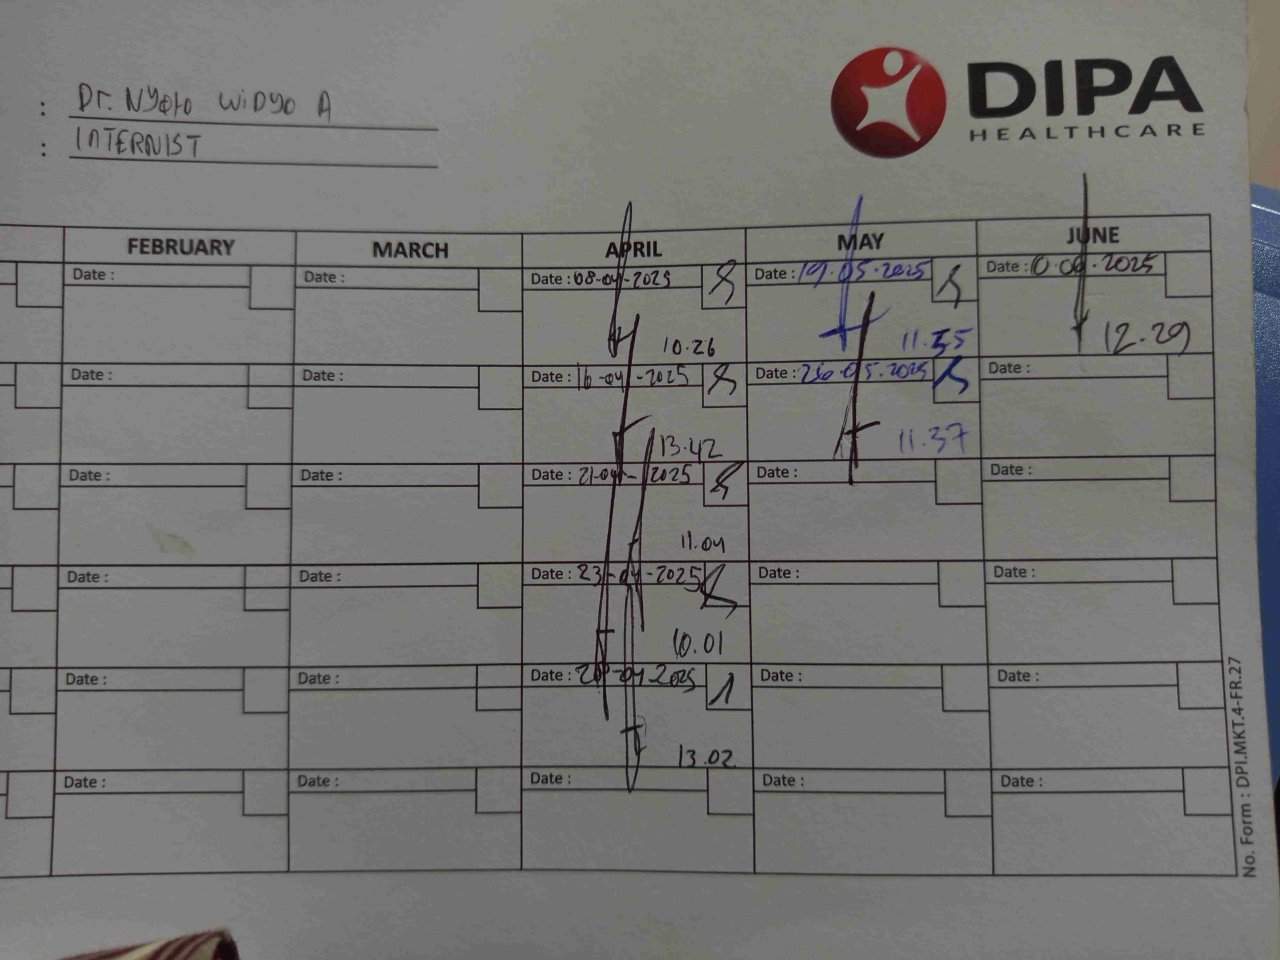 : Dr. Nyoto Widyo A
: INTERNIST
DIPA
HEALTHCARE
FEBRUARY MARCH APRIL MAY JUNE
Date : Date : Date : 08-04-2025 Date : 19.05.2025 Date : 10.06.2025
10.26 11.35 12.29
Date : Date : Date : 16-04-2025 Date : 26.05.2025 Date :
13.42 11.37
Date : Date : Date : 21-04-2025 Date : Date :
11.04
Date : Date : Date : 23-04-2025 Date : Date :
10.01
Date : Date : Date : -04-2025 Date : Date :
13.02
Date : Date : Date : Date : Date :
No. Form : DPI.MKT.4-FR.27